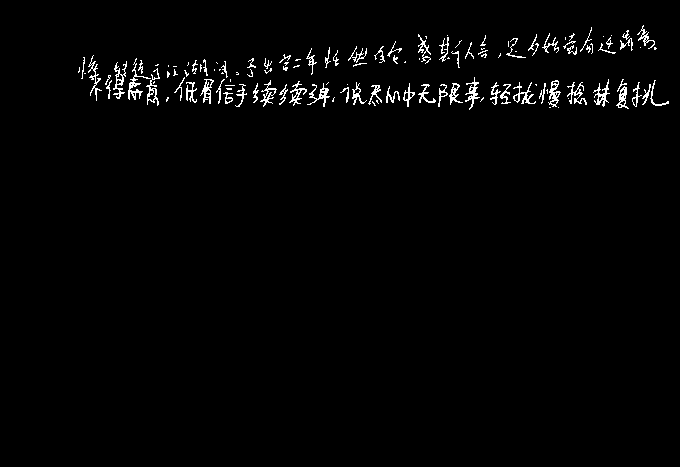 憔 转徙于江湖间。予出官二年恬然自安,感斯人言,是夕始觉有迁谪意
不得意,低眉信手续续弹,说尽心中无限事,轻拢慢捻抹复挑